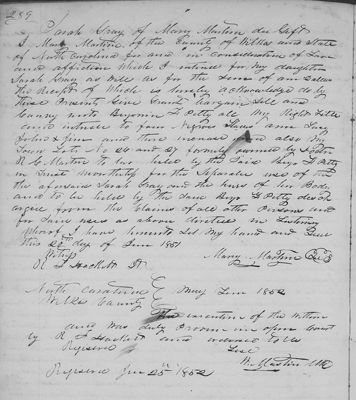 239
Sarah Gray of Mary Martin de Gift
I Mary Martin of the County of Wilkes and State
of North Carolina for and in Consideration of Love
and affection which I intend for my daughter
Sarah Gray as well as for the Sum of one Dollar
the Receipt of which is hereby acknowledged by
these Presents Give Grant Bargain Sell and
Convey unto Benjamin F Petty all My Right Title
and interest to four Negroes Slaves
and their increase and also My
Town Lots No 26 and 27 formerly owned by
R C Martin to be held by the Said Benj F Petty
in Trust for the Seperate use of
the aforesaid Sarah Gray and the heirs of her Body
and to be held by the Said Benj F Petty
free from the Claims of all other Persons and
for Said uses as above directed in Testimony
whereof I have hereunto Set My hand and Seal
this 22d day of June 1851
Witness Mary Martin Seal
R F Hackett
North Carolina
Wilkes County
The execution of the within
Deed was duly Proven in open Court
by R F Hackett and ordered to be
Registered Test
W Martin Clk
Registered June 25th 1852